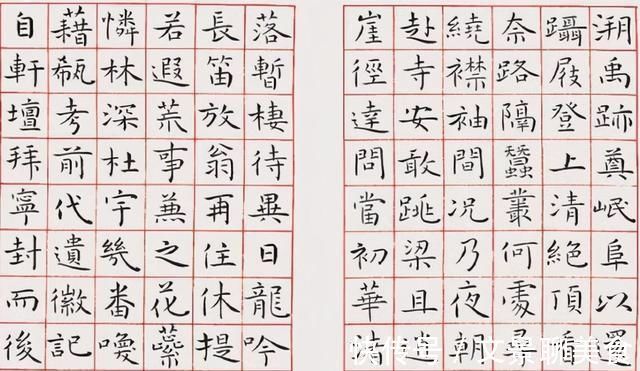 溯禹跡奠岷阜以還
躡屐登上清絕頂看
奈路隔蠶叢何處尋
繞襟袖間況乃夜朝
赴寺安敢跳梁且
崖徑達問當初華
落暫棲待異日龍吟
長笛放翁再住休提
若遐荒事兼之花蘂
憐林深杜宇幾番喚
藉瓻考前代遺徽記
自軒壇拜寧封而後
快传号 / 文景聊美食